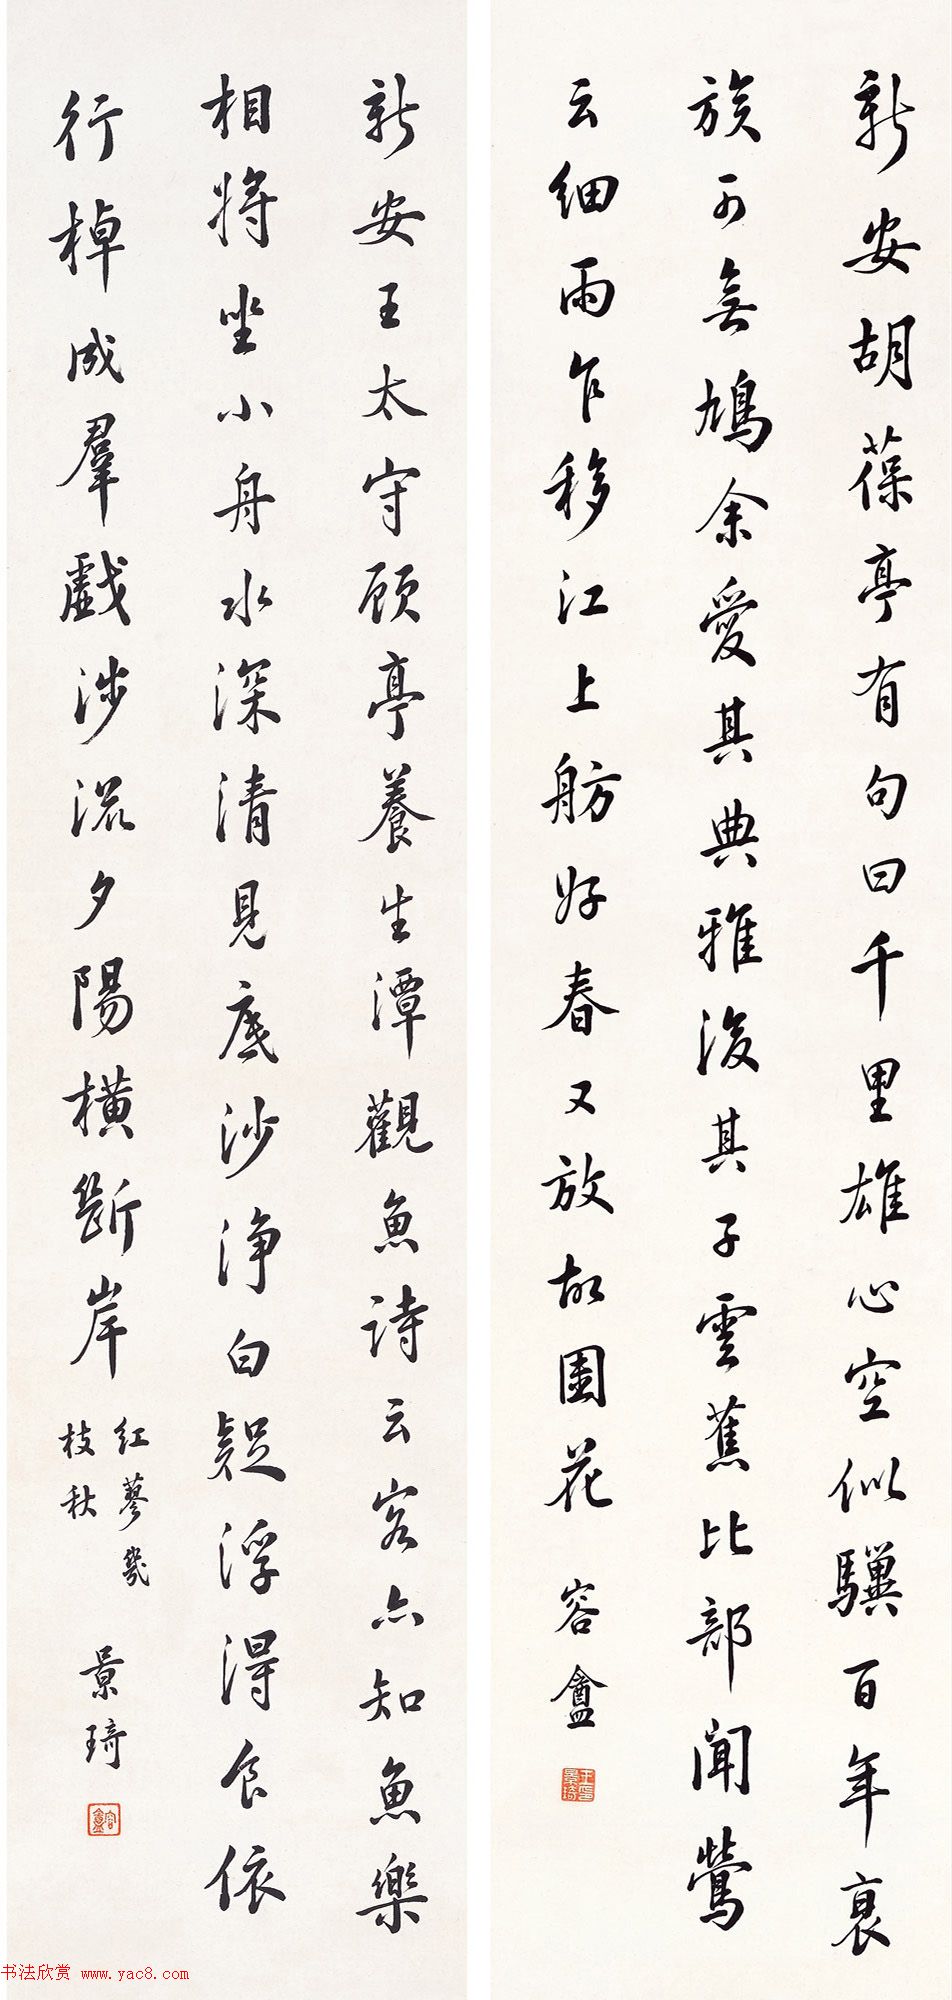 新安胡葆亭有句曰千里雄心空似驥百年衰
族可無鳩余愛其典雅後其子雲蕉比部聞鶯
云細雨乍移江上舫好春又放故園花
容盦
王印景琦
新安王太守顧亭養生潭觀魚詩云客亦知魚樂
相將坐小舟水深清見底沙淨白疑浮得食依
行棹成羣戲涉流夕陽橫斷岸
紅蓼幾
枝秋
景琦
容盦
书法欣赏 www.yac8.com